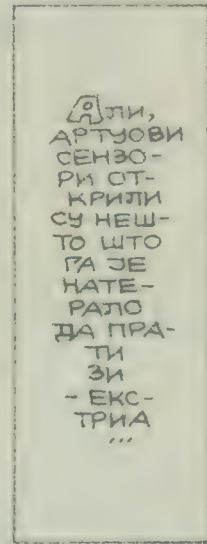 Али,
АРТУОВИ
СЕНЗО-
РИ ОТ-
КРИЛИ
СУ НЕШ-
ТО ШТО
ГА ЈЕ
НАТЕ-
РАЛО
ДА ПРА-
ТИ
ЗИ
- ЕКС-
ТРИА
...